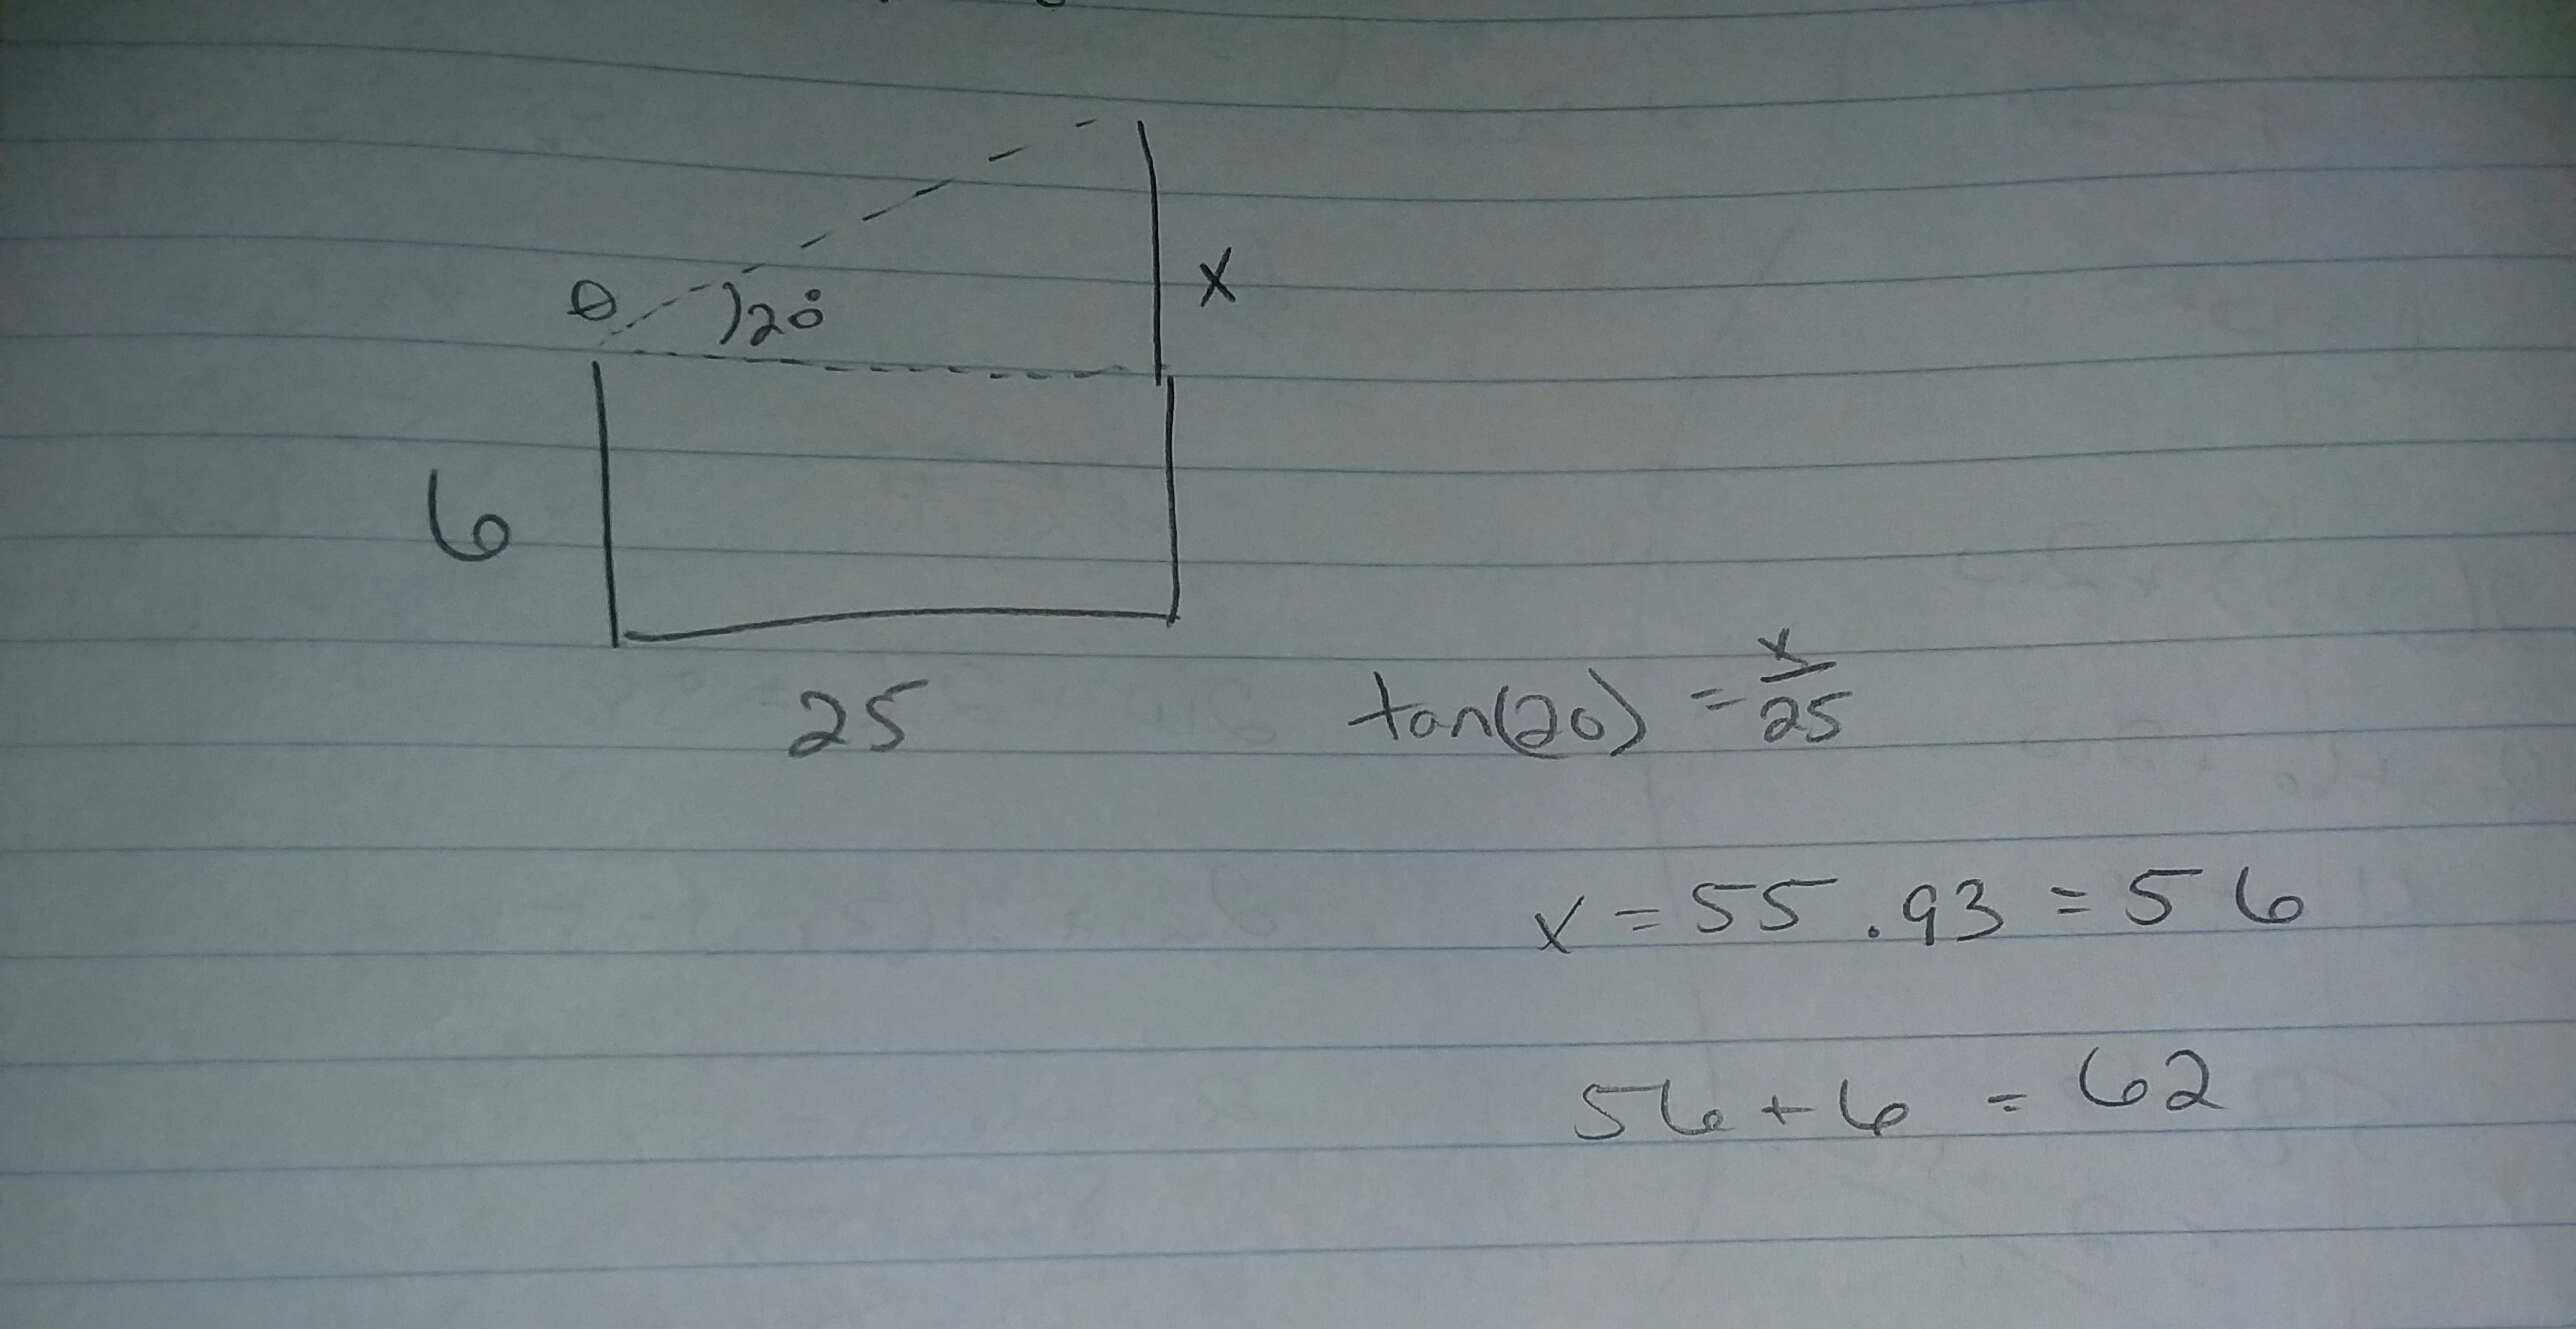 x
θ )20°
6
25
tan(20) = x/25
x = 55.93 = 56
56 + 6 = 62